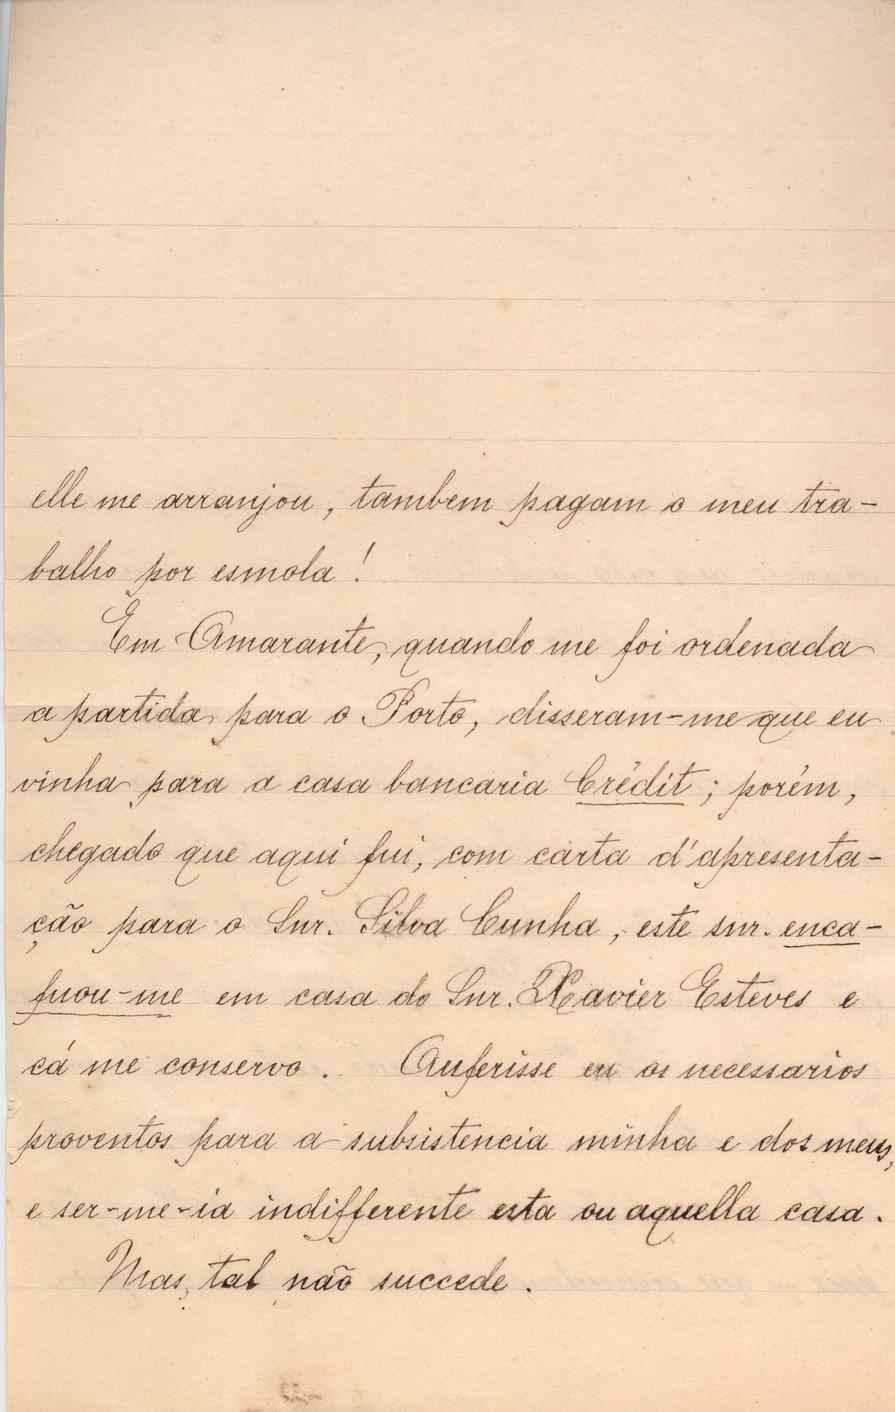 elle me arranjou, tambem pagam o meu tra-
balho por esmola!
Em Amarante, quando me foi ordenada
a partida para o Porto, disseram-me que eu
vinha para a casa bancaria Crédit; porém,
chegado que aqui fui, com carta d'apresenta-
ção para o Snr. Silva Cunha, este snr. enca-
fuou-me em casa do Snr. Xavier Esteves e
cá me conservo. Auferisse eu os necessarios
proventos para a subsistencia minha e dos meus,
e ser-me-ia indifferente esta ou aquella casa.
Mas, tal não succede.